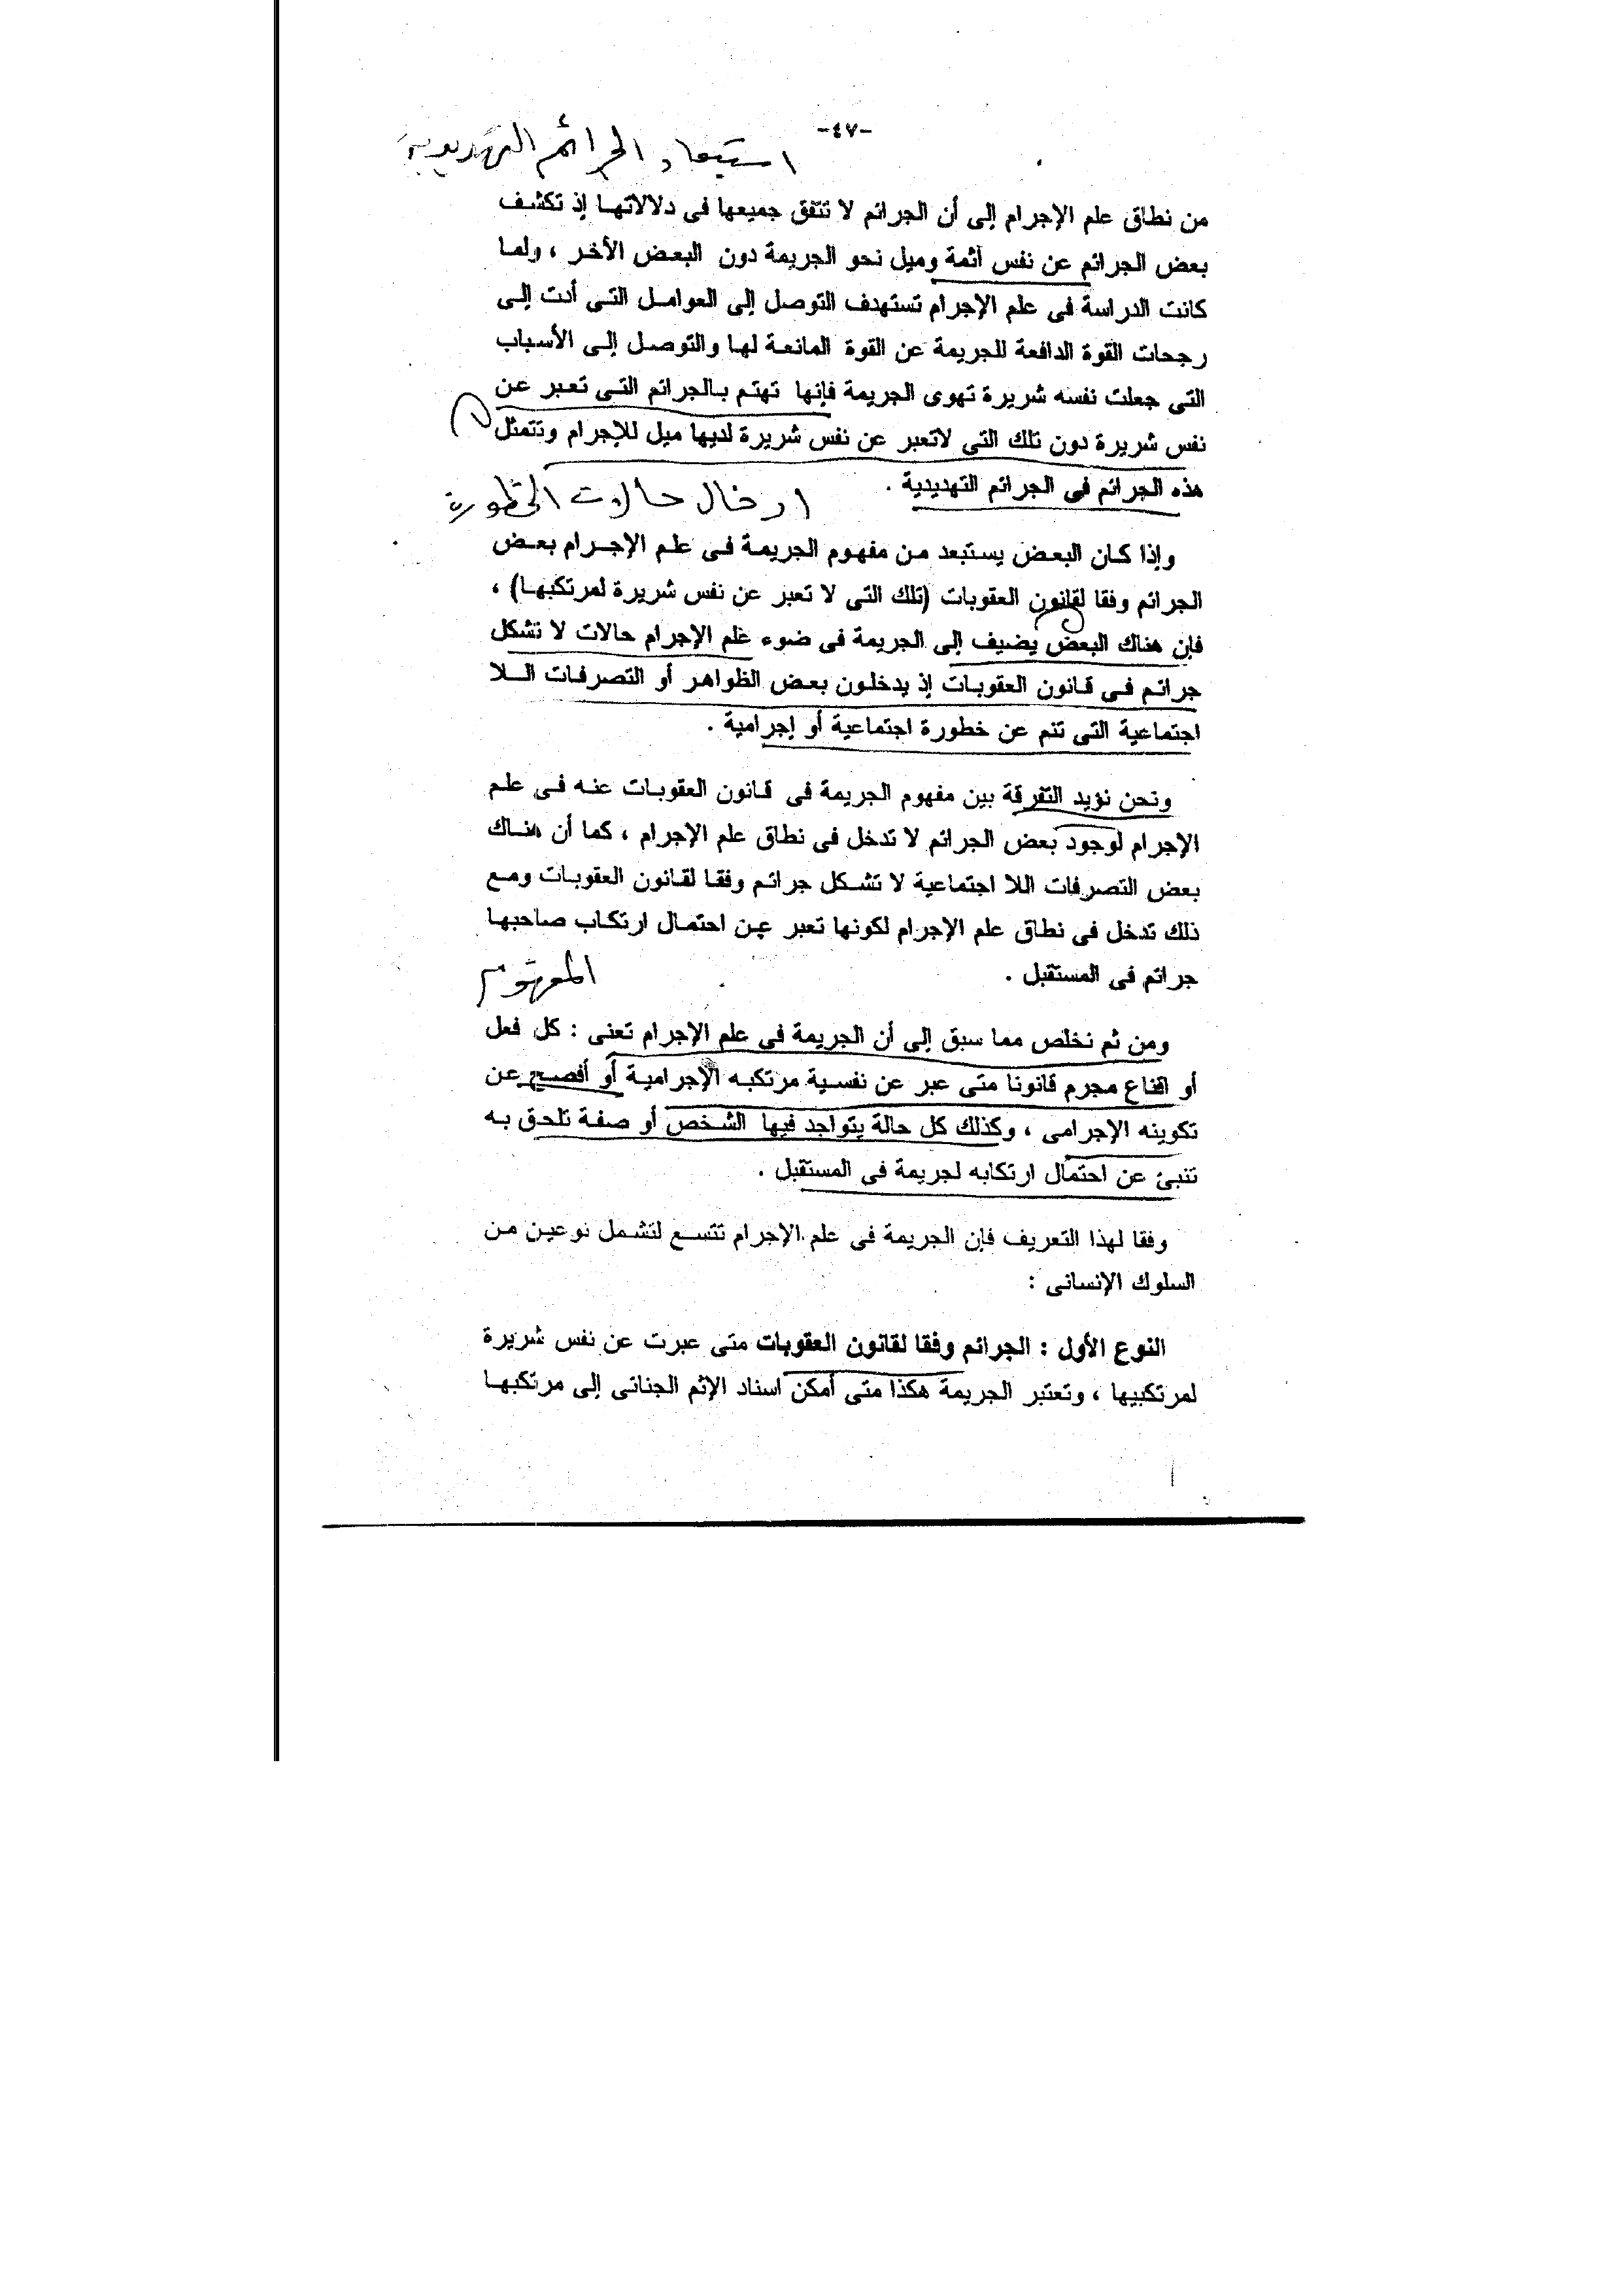 -٤٧-
استبعاد الجرائم التهديدية
من نطاق علم الإجرام إلى أن الجرائم لا تتفق جميعها فى دلالاتها إذ تكشف
بعض الجرائم عن نفس آثمة وميل نحو الجريمة دون البعض الأخر ، ولما
كانت الدراسة فى علم الإجرام تستهدف التوصل إلى العوامل التى أدت إلى
رجحات القوة الدافعة للجريمة عن القوة المانعة لها والتوصل إلى الأسباب
التى جعلت نفسه شريرة تهوى الجريمة فإنها تهتم بالجرائم التى تعبر عن
نفس شريرة دون تلك التى لاتعبر عن نفس شريرة لديها ميل للإجرام وتتمثل
هذه الجرائم فى الجرائم التهديدية .
ادخال حالات الخطورة
وإذا كان البعض يستبعد من مفهوم الجريمة فى علم الإجرام بعض
الجرائم وفقا لقانون العقوبات (تلك التى لا تعبر عن نفس شريرة لمرتكبها) ،
فإن هناك البعض يضيف إلى الجريمة فى ضوء علم الإجرام حالات لا تشكل
جرائم فى قانون العقوبات إذ يدخلون بعض الظواهر أو التصرفات اللا
اجتماعية التى تنم عن خطورة اجتماعية أو إجرامية .
ونحن نؤيد التفرقة بين مفهوم الجريمة فى قانون العقوبات عنه فى علم
الإجرام لوجود بعض الجرائم لا تدخل فى نطاق علم الإجرام ، كما أن هناك
بعض التصرفات اللا اجتماعية لا تشكل جرائم وفقا لقانون العقوبات ومع
ذلك تدخل فى نطاق علم الإجرام لكونها تعبر عن احتمال ارتكاب صاحبها
جرائم فى المستقبل .
المفهوم
ومن ثم نخلص مما سبق إلى أن الجريمة فى علم الإجرام تعنى : كل فعل
أو اقناع مجرم قانونا متى عبر عن نفسية مرتكبه الإجرامية أو أفصح عن
تكوينه الإجرامى ، وكذلك كل حالة يتواجد فيها الشخص أو صفة تلحق به
تنبئ عن احتمال ارتكابه لجريمة فى المستقبل .
وفقا لهذا التعريف فإن الجريمة فى علم الإجرام تتسع لتشمل نوعين من
السلوك الإنسانى :
النوع الأول : الجرائم وفقا لقانون العقوبات متى عبرت عن نفس شريرة
لمرتكبيها ، وتعتبر الجريمة هكذا متى أمكن اسناد الإثم الجنائى إلى مرتكبها